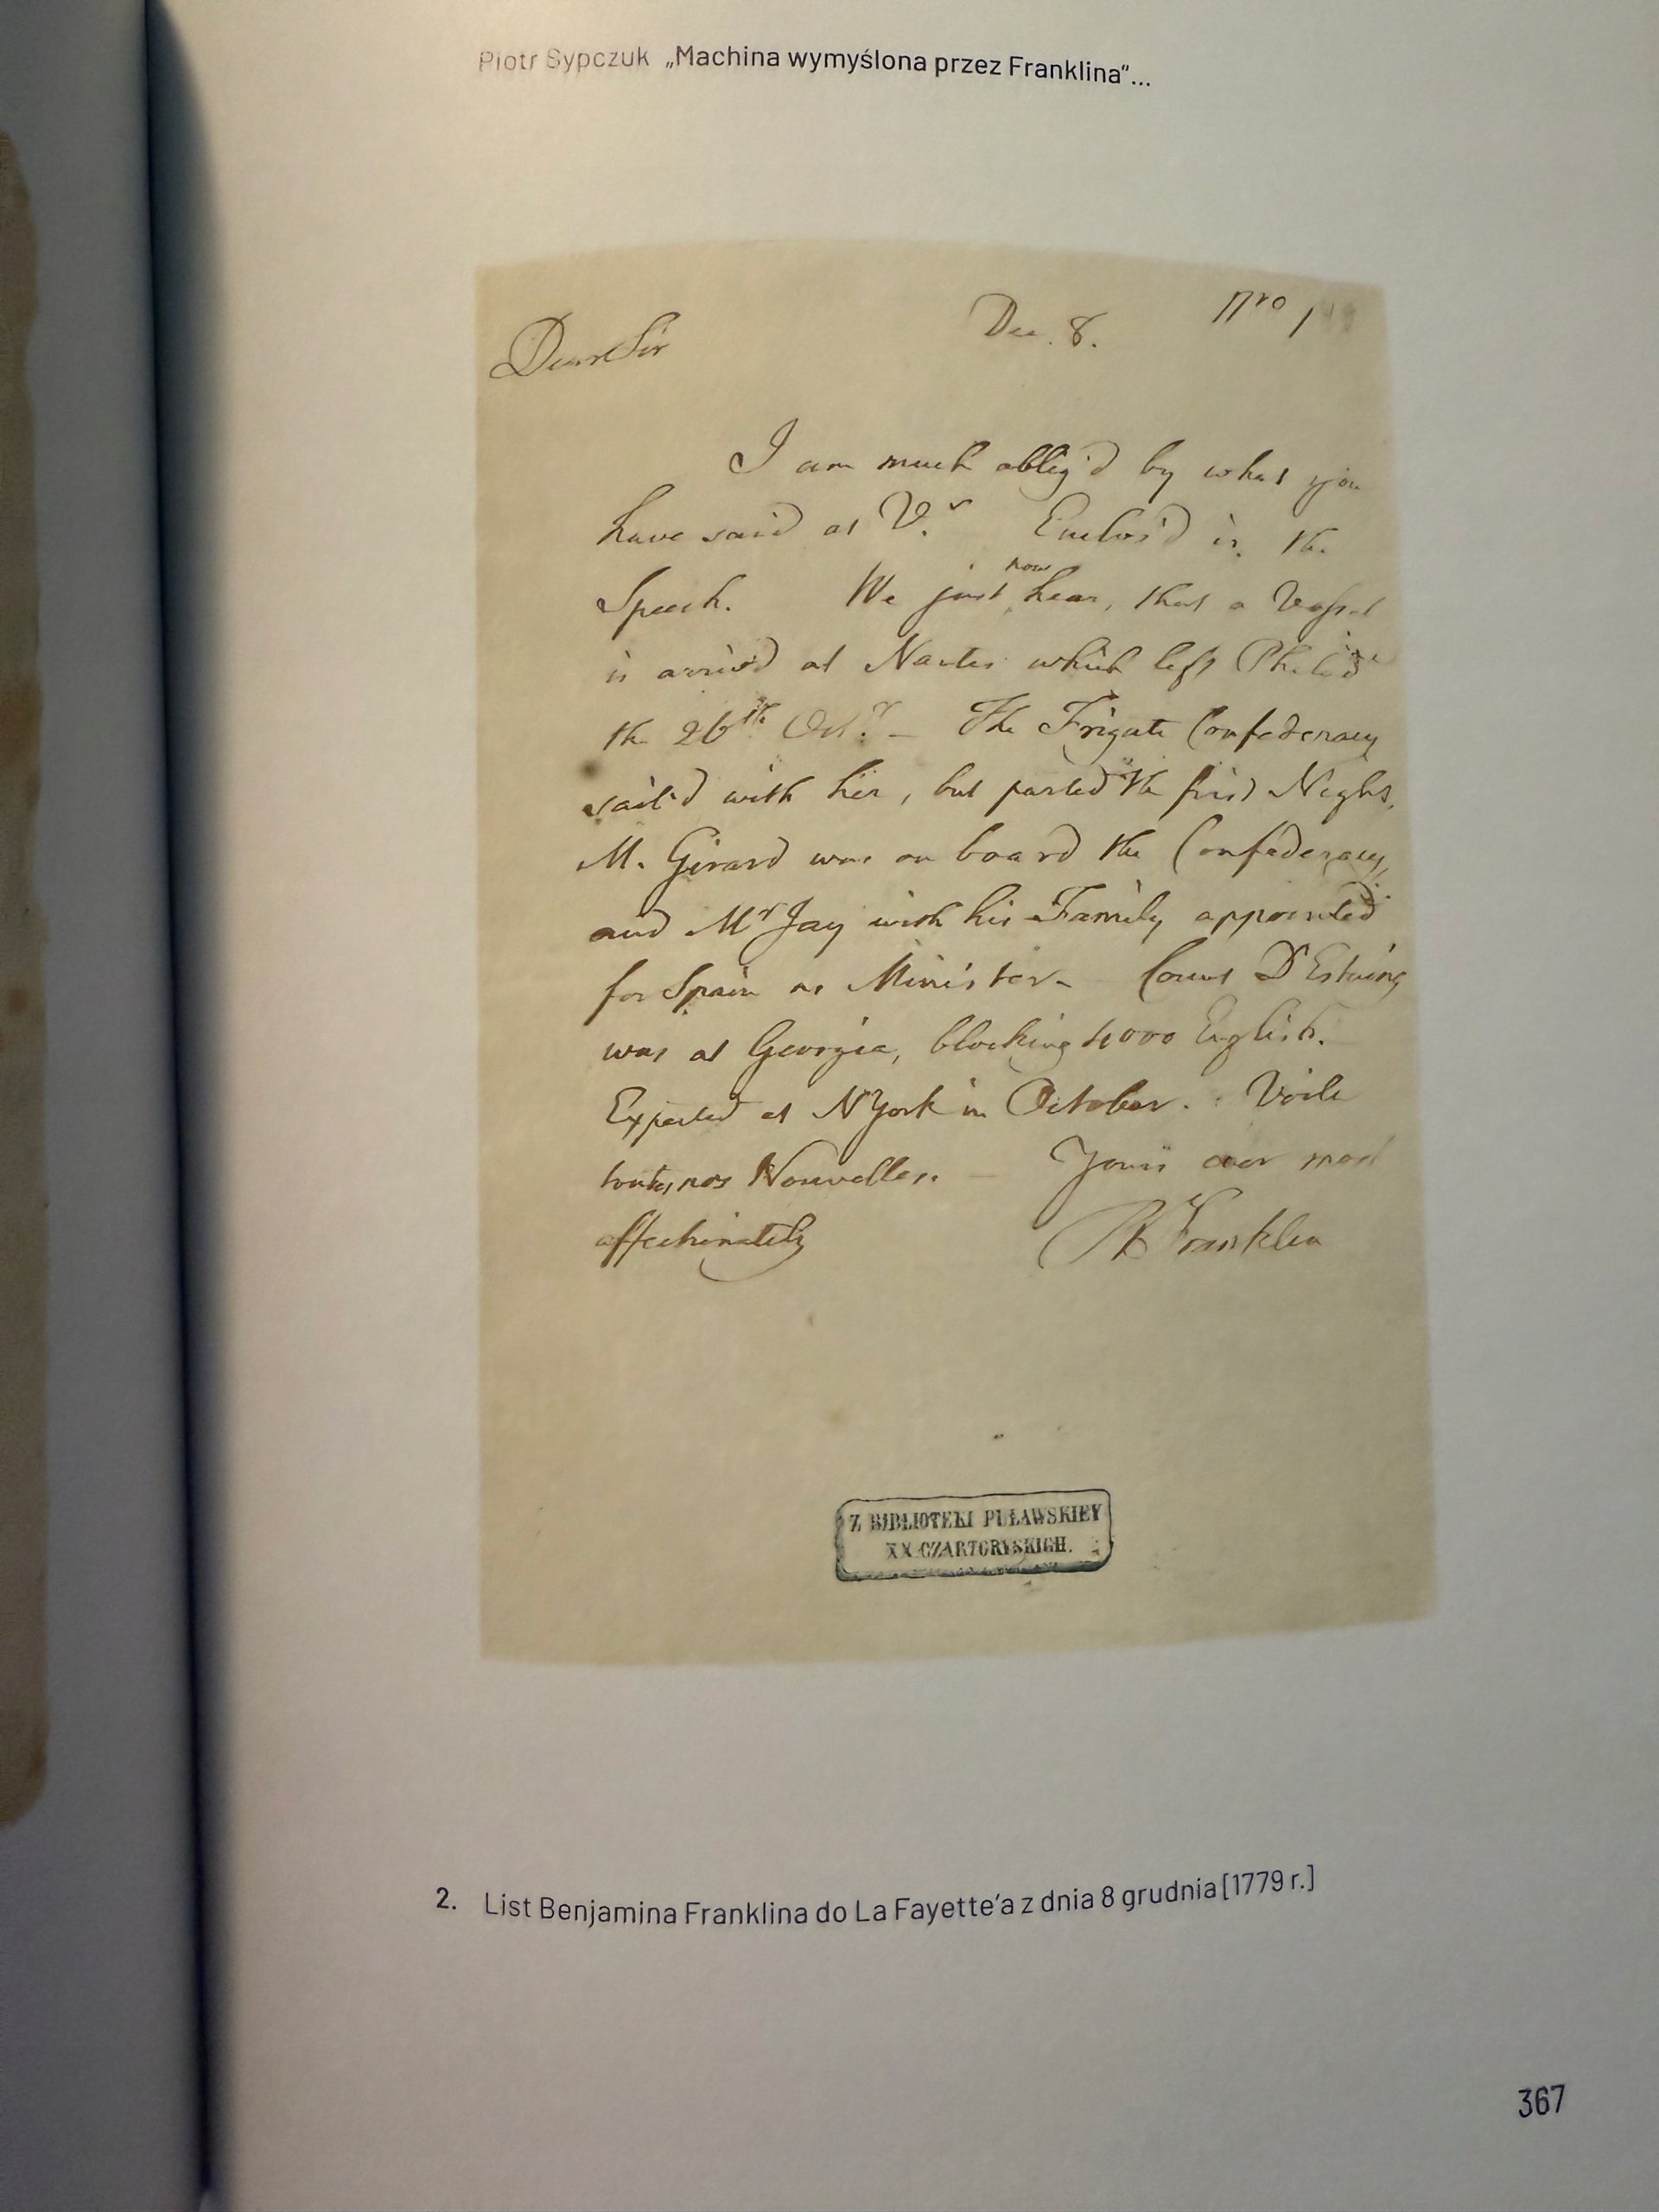 Piotr Sypczuk „Machina wymyślona przez Franklina”...
Dear Sir Dec. 8. Nro
I am much oblig'd by what you
have said at V.s Enclos'd is the
Speech. We just now hear, that a Vessel
is arriv'd at Nantes which left Philada
the 26th. Octr. — The Frigate Confederacy
sail'd with her, but parted the first Night,
M. Girard was on board the Confederacy,
and Mr Jay with his Family appointed
for Spain as Minister — Count D'Estaing
was at Georgia, blocking 4000 English.
Expected at N York in October. Voila
toutes nos Nouvelles. — Yours ever most
affectionately B Franklin
Z BIBLIOTEKI PUŁAWSKIEY
XX. CZARTORYSKICH.
2. List Benjamina Franklina do La Fayette’a z dnia 8 grudnia [1779 r.]
367